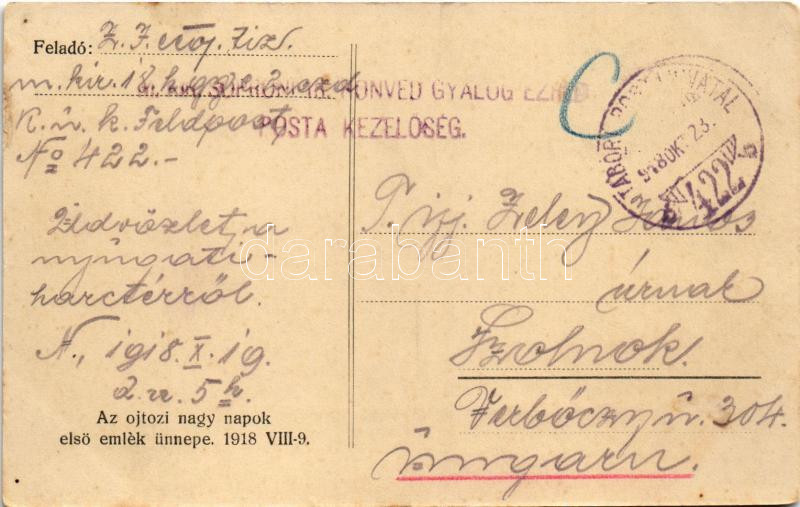 Feladó: Z. F. czög. tiz.
m. kir. 18. h. gy. e. 2. szd
K. u. k. Feldpost
No 422.-
Üdvözlet a
nyugati
harctérről.
N., 1918. X. 19.
d. u. 5 h.
Az ojtozi nagy napok
első emlék ünnepe. 1918 VIII-9.
SOPRONI HONVÉD GYALOG EZRED
POSTA KEZELŐSÉG.
TÁBORI POSTAHIVATAL
918 OKT 23.
422
b
T. ifj. Zelez János
úrnak
Szolnok.
Verbőczy ú. 304.
Ungarn.
darabanth